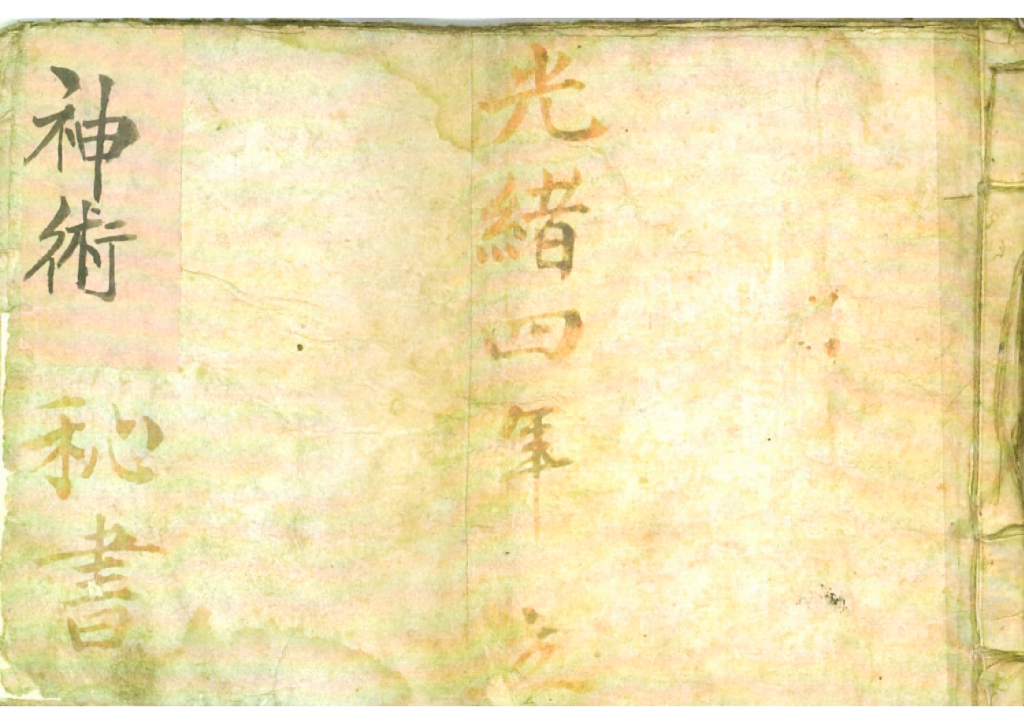 光緒四年立
神術秘書